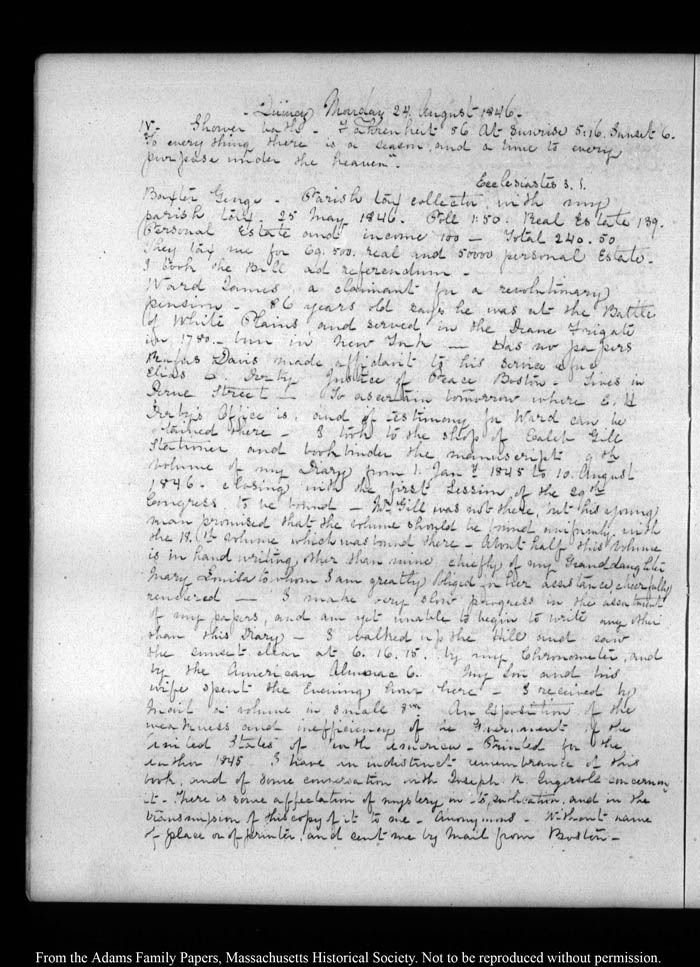 - Quincy Monday 24. August 1846.
IV. Shower bath - Fahrenheit 56. At Sunrise 5:16. Sunset 6.
To every thing there is a season, and a time to every
purpose under the heaven".
Ecclesiastes 3. 1.
Baxter George - Parish tax collector, with my
parish tax. 25 May 1846. Poll 1:50. Real Estate 139.
Personal Estate and income 100 - Total 240.50
They tax me for 69.500 real and 50000 personal Estate.
I took the Bill ad referendum -
Ward James, a claimant for a revolutionary
pension - 86 years old says he was at the Battle
of White Plains, and served in the Deane Frigate
in 1780 - born in New York - Has no papers
Rufus Davis made affidavit to his service
Elias Derby Justice of Peace Boston - Lives in
Derne Street - To ascertain tomorrow where E. H
Derby's Office is, and if testimony for Ward can be
obtained there - I took to the shop of Caleb Gill
Stationer and bookbinder the manuscript
volume of my Diary from 1. Jany 1845 to 10. August
1846. closing with the first Session of the 29th
Congress, to be bound - Mr Gill was not there, but his young
man promised that the volume should be bound uniformly with
the volume which was bound there - About half this volume
is in hand writing other than mine chiefly of my Granddaughter
Mary Louisa to whom I am greatly obliged for her assistance, cheerfully
rendered - I make very slow progress in the assortment
of my papers, and am yet unable to begin to write any other
than this Diary - I walked up the Hill and saw
the sunset clear at 6. 16. 15. by my Chronometer, and
by the American Almanac 6. My Son and his
wife spent the Evening hour here - I received by
mail a volume in small 8vo An Exposition of the
weakness and inefficiency of the Government of the
United States of North America - Printed for the
author 1845. I have an indistinct remembrance of this
book, and of some conversation with Joseph R. Ingersoll concerning
it - There is some affectation of mystery in its publication, and in the
transmission of this copy of it to me - Anonymous - Without name
of place or of printer, and sent me by mail from Boston -
From the Adams Family Papers, Massachusetts Historical Society. Not to be reproduced without permission.